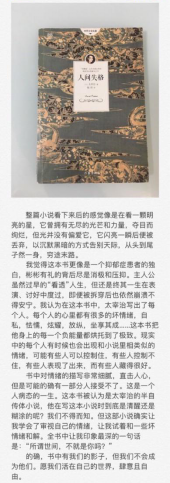 人间失格
整篇小说看下来后的感觉像是在看一颗明
亮的星，它曾拥有无尽的光芒和力量，夺目而
绚烂，但光并没有偏爱它，它闪亮一瞬后便被
丢弃，以沉默黑暗的方式告别天际，从头到尾
孑然一身，穷途末路。
我觉得这本书更像是一个抑郁症患者的独
白，彬彬有礼的背后尽是消极和压抑。主人公
虽然过早的“看透”人生，但还是终其一生在表
演、讨好中度过，即便被拆穿后也依然崩溃不
得安宁。我认为在这本书中，太宰治写出了每
个人，每个人的心里都有很多的坏情绪，自
私，怯懦，炫耀，放纵，坐享其成……这本书把
他身上的每一个负能量都烘托到了极致。现实
中的每个人有时候也会出现和小说里相类似的
情绪，可能有些人可以控制住，有些人控制不
住，有些人表现了出来，而有些人藏得很好。
书中对情绪的描写非常细腻，直击人心，
但是可能的确有一部分人接受不了。这是一个
人病态的一生。这本书被认为是太宰治的半自
传体小说，他在写这本小说时到底是清醒还是
糊涂的呢？我们不得而知。但这部小说确实让
我学会了审视自己的情绪，让我试着和一些坏
情绪和解。全书中让我印象最深的一句话
是：“所谓世间，不就是你吗？”
的确，书中有我们的影子，但我们不会成
为他们。愿我们活在自己的世界，肆意且自
由。